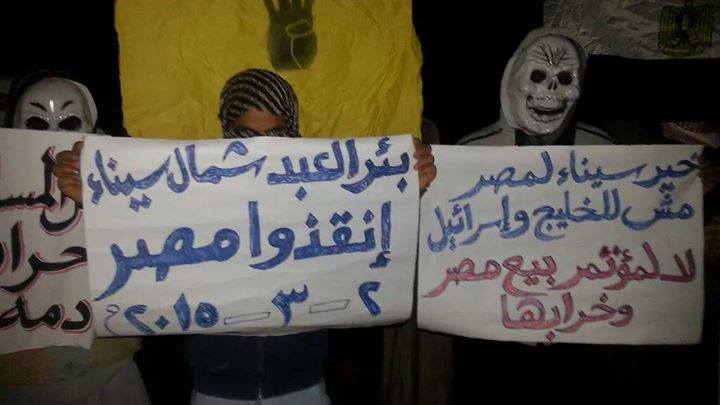 خير سيناء لمصر
مش للخليج وإسرائيل
لا لمؤتمر بيع مصر
وخرابها
بئر العبد شمال سيناء
إنقذوا مصر
٢ - ٣ - ٢٠١٥ م
حرا
دمه